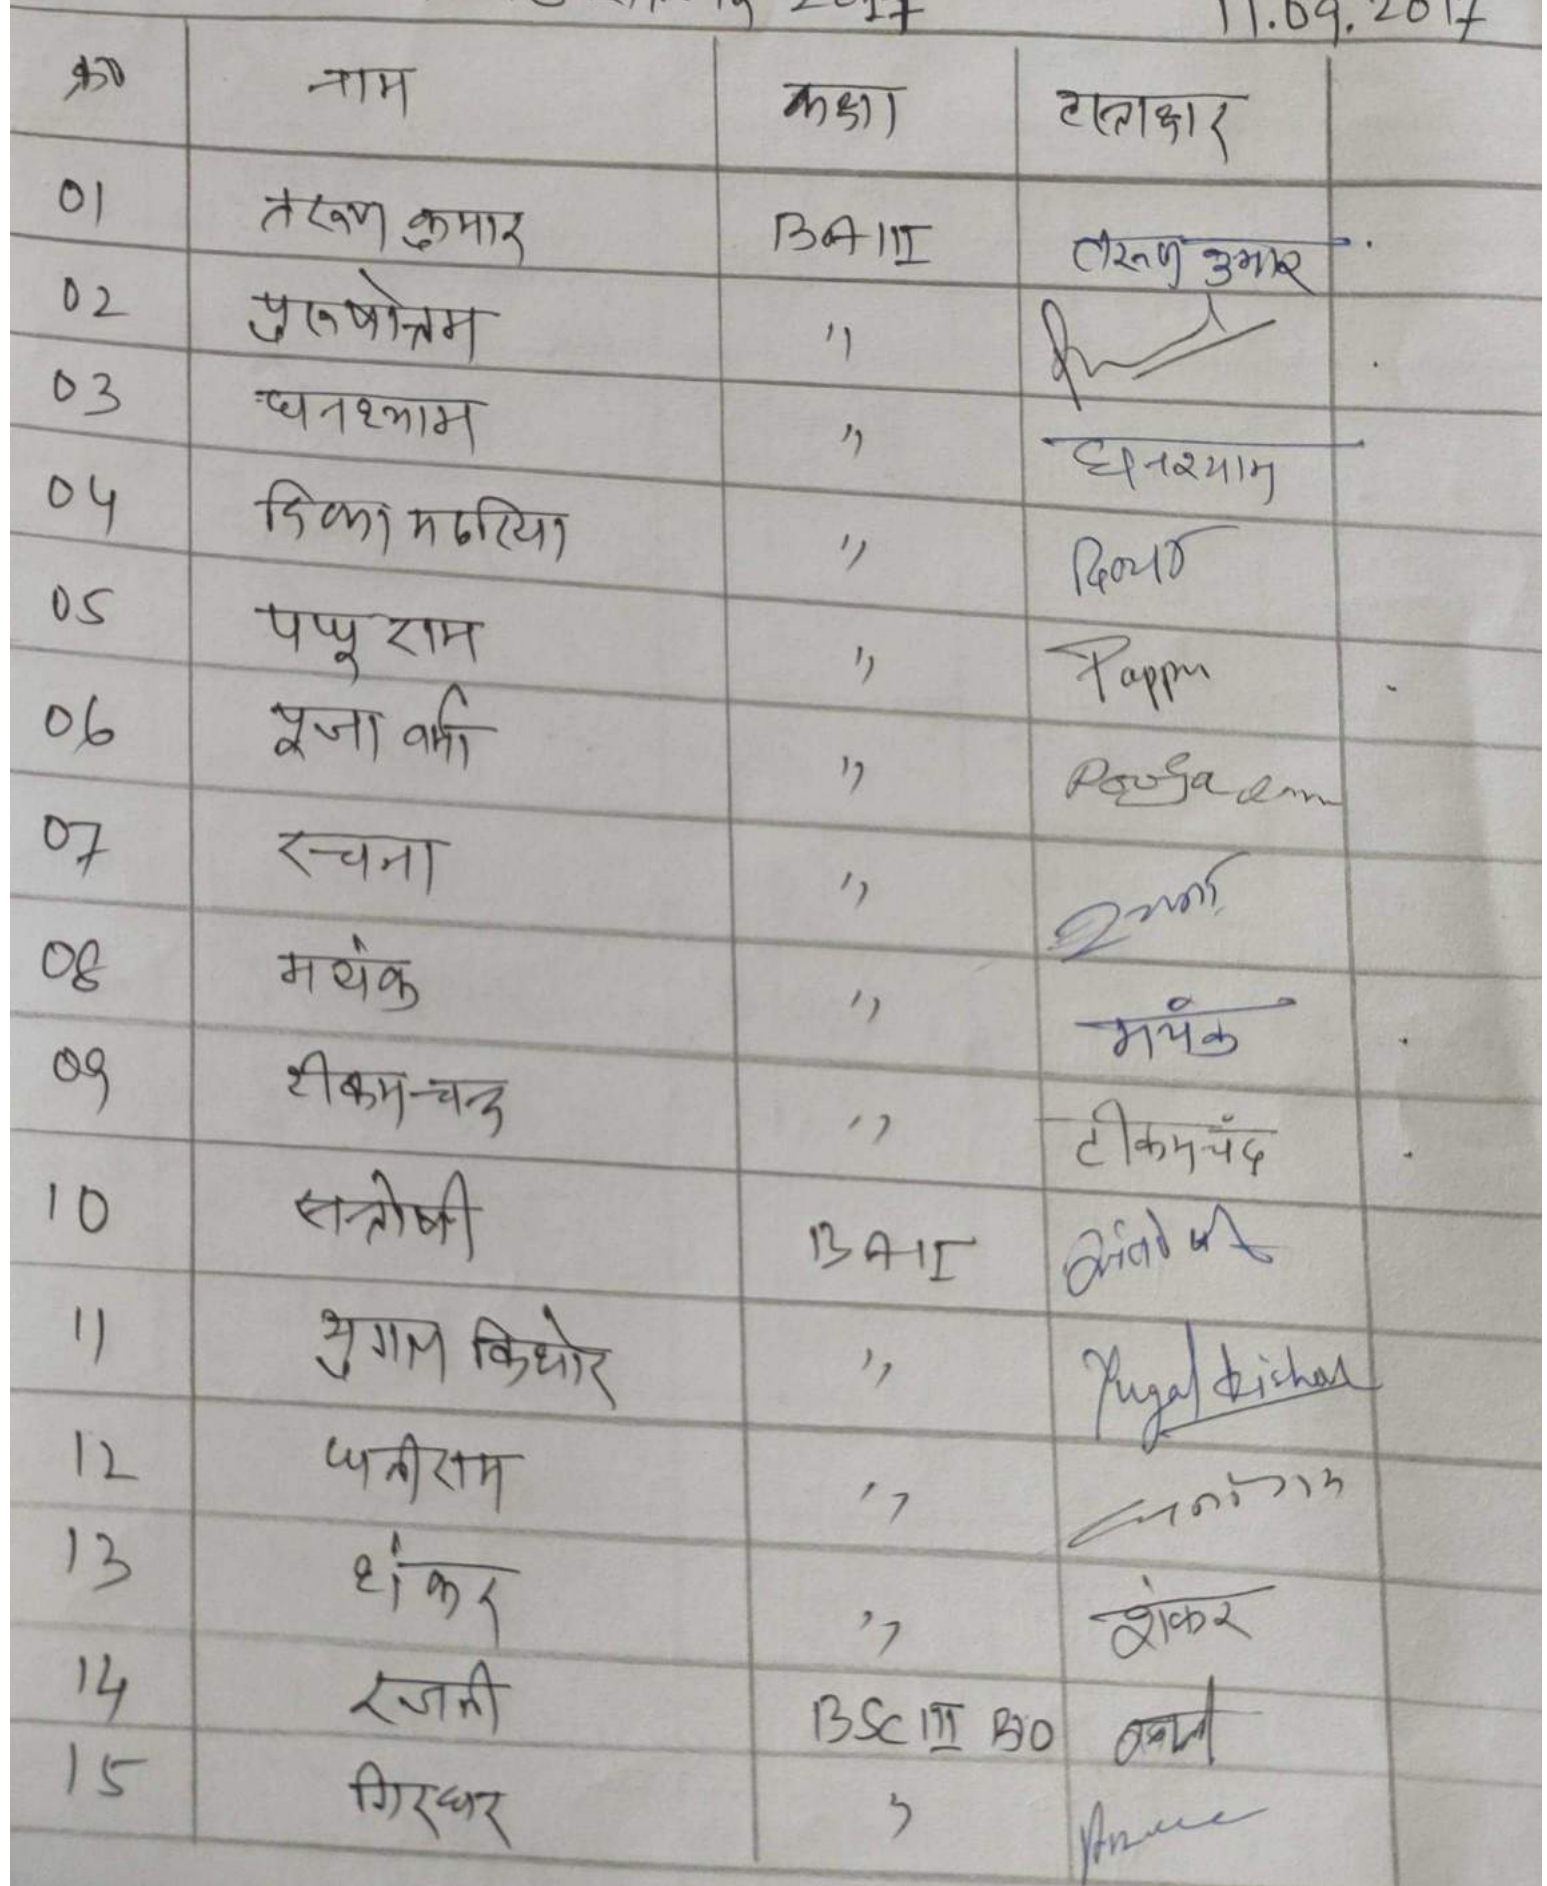 2017 11.09.2017
क्र० नाम कक्षा हस्ताक्षर
01 तरूण कुमार BA III तरूण कुमार
02 पुरूषोत्तम "
03 घनश्याम " घनश्याम
04 दिव्या " दिव्या
05 पप्पू राम " Pappu
06 पूजा वर्मा " Pooja
07 रचना "
08 मयंक " मयंक
09 टीकमचन्द " टीकमचंद
10 सन्तोषी BA II संतोषी
11 युगल किशोर " Yugal Kishor
12 धनीराम "
13 शंकर " शंकर
14 रजनी BSC III BIO
15 गिरधर "